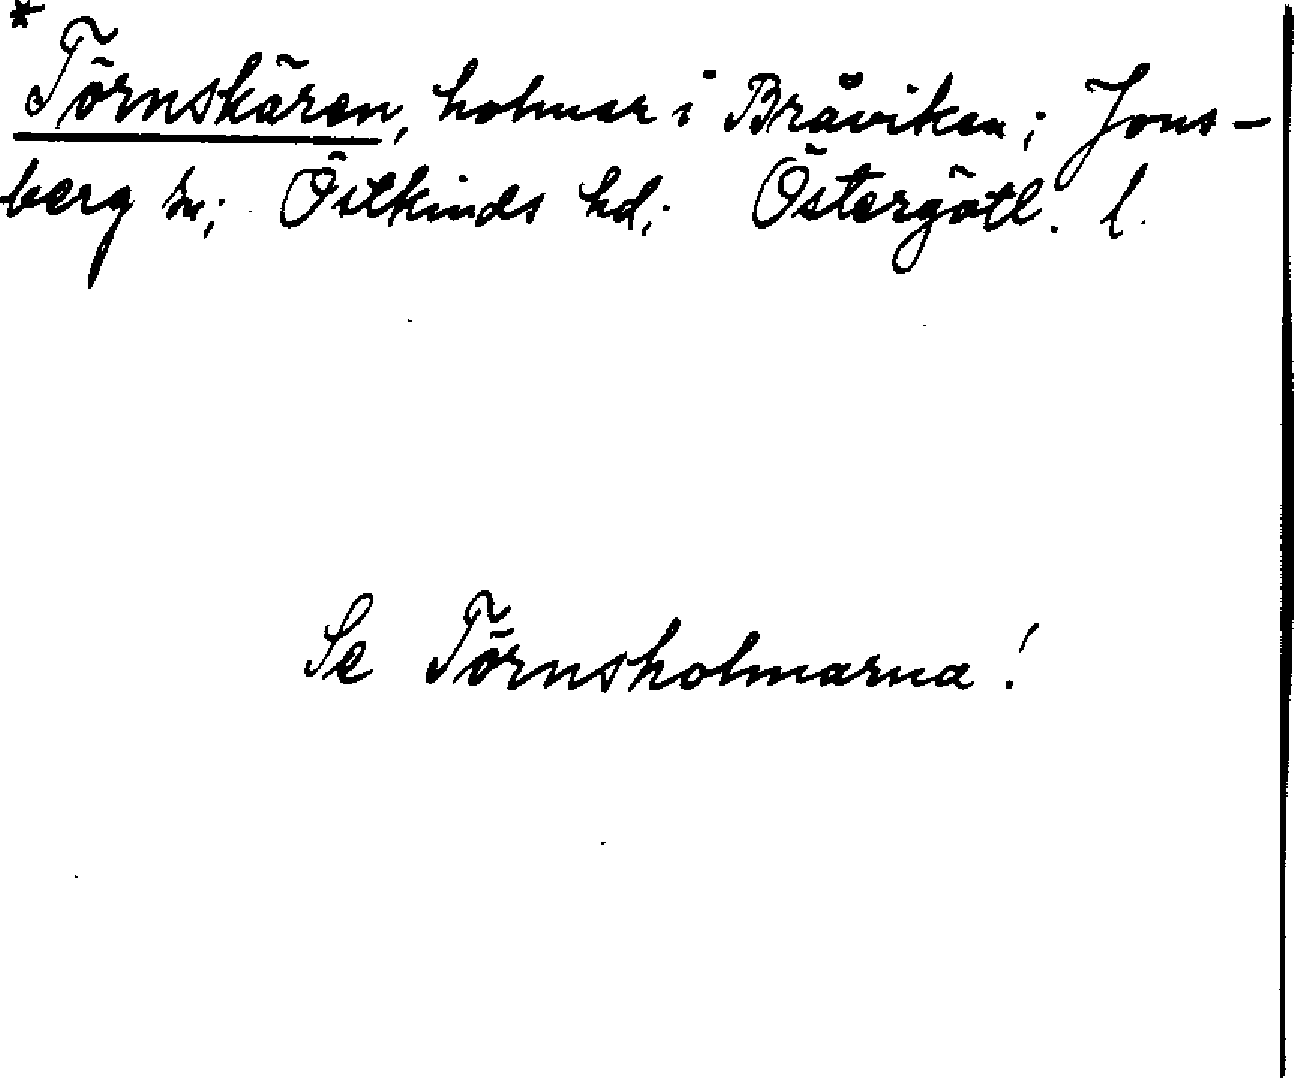 * Törnskären, holmar i Bråviken; Jons-
berg sn; Östkinds hd; Östergötl. l.
Se Törnsholmarna!